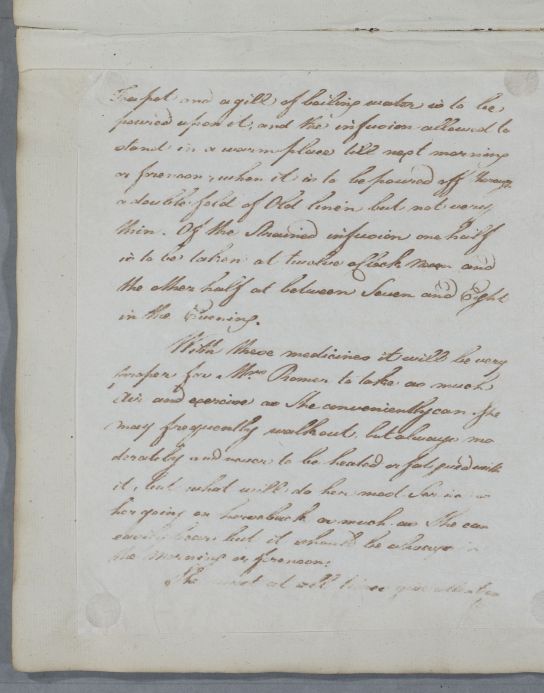 Teapot and a gill of boiling water is to be
poured upon it, and the infusion allowed to
stand in a warm place till next morning
or frenoon, when it is to be poured off through
a double fold of Old linen but not very
thin. Of the Strained infusion one half
is to be taken at twelve oClock Noon and
the other half at between Seven and Eight
in the Evening.
With these medicines it will be very
proper for Mrs to take as much
Air and exercise as She conveniently can. She
may frequently walk out, but always mo
derately and never to be heated or fatigued with
it, but what will do her most Service is
her going on horseback as much as She can
but it should be always in
the Morning or frenoon.
She must at all times give attention